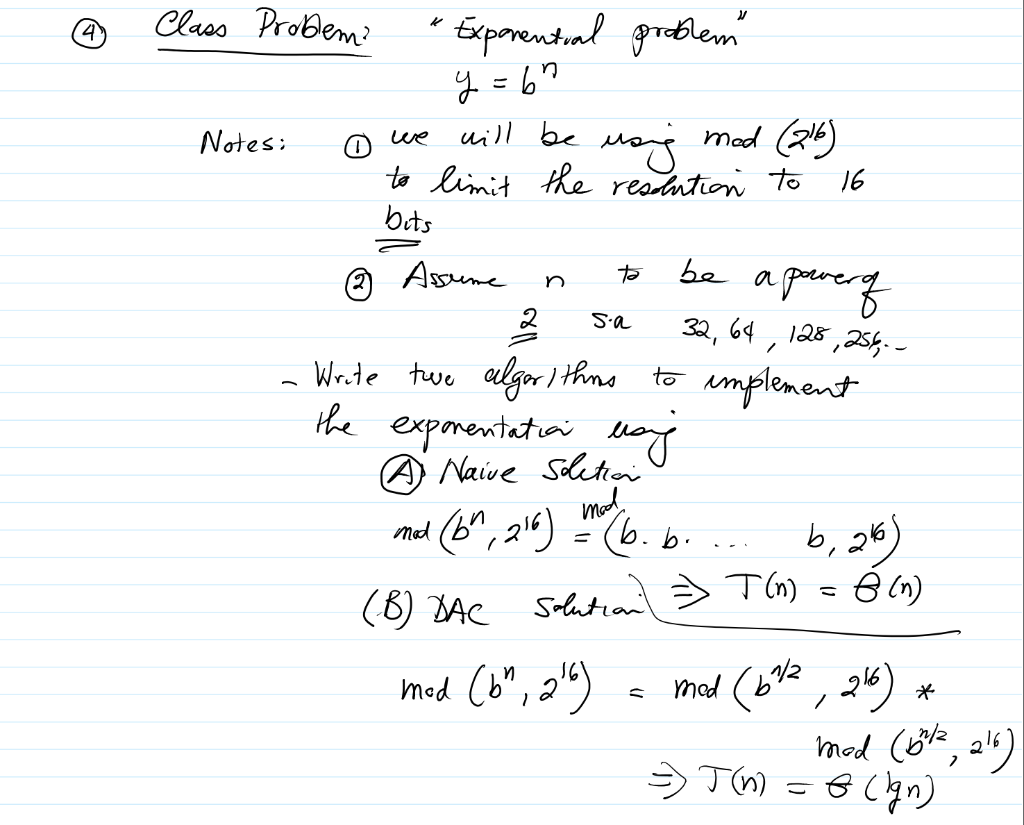 ④ Class Problem: "Exponential problem"
y = b^n
Notes: ① we will be using mod (2^16)
to limit the resolution to 16
bits
② Assume n to be a power of
2 s.a 32, 64, 128, 256, ...
- Write two algorithms to implement
the exponentation using
Ⓐ Naive Solution
mod (b^n, 2^16) = mod (b. b. ... b, 2^16)
⇒ T(n) = θ(n)
(B) DAC Solution
mod (b^n, 2^16) = mod (b^n/2, 2^16) *
mod (b^n/2, 2^16)
⇒ T(n) = θ(lgn)